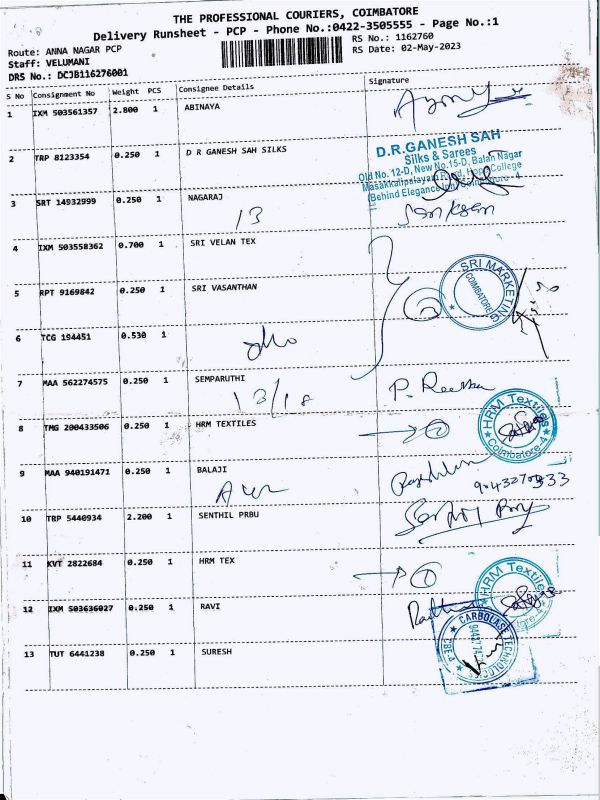 THE PROFESSIONAL COURIERS, COIMBATORE
Delivery Runsheet - PCP - Phone No.:0422-3505555 - Page No.:1
Route: ANNA NAGAR PCP
Staff: VELUMANI
DRS No.: DCJB116276001
RS No.: 1162760
RS Date: 02-May-2023
S No Consignment No Weight PCS Consignee Details Signature
1 IXM 503561357 2.800 1 ABINAYA
2 TRP 8123354 0.250 1 D R GANESH SAH SILKS
D.R.GANESH SAH
Silks & Sarees
Old No. 12-D, New No.15-D, Balan Nagar
(Behind Elegance Inn) Coimbatore - 4
3 SRT 14932999 0.250 1 NAGARAJ
13
4 IXM 503558362 0.700 1 SRI VELAN TEX
SRI MARKETING
COIMBATORE
5 RPT 9169842 0.250 1 SRI VASANTHAN
6 TCG 194451 0.530 1
7 MAA 562274575 0.250 1 SEMPARUTHI
13/18
8 TMG 200433506 0.250 1 HRM TEXTILES
HRM Textiles
Coimbatore-4
9 MAA 940191471 0.250 1 BALAJI
10 TRP 5440934 2.200 1 SENTHIL PRBU
11 KVT 2822684 0.250 1 HRM TEX
HRM Textiles
12 IXM 503636027 0.250 1 RAVI
CARBOLASE TECHNOLOGIES
13 TUT 6441238 0.250 1 SURESH